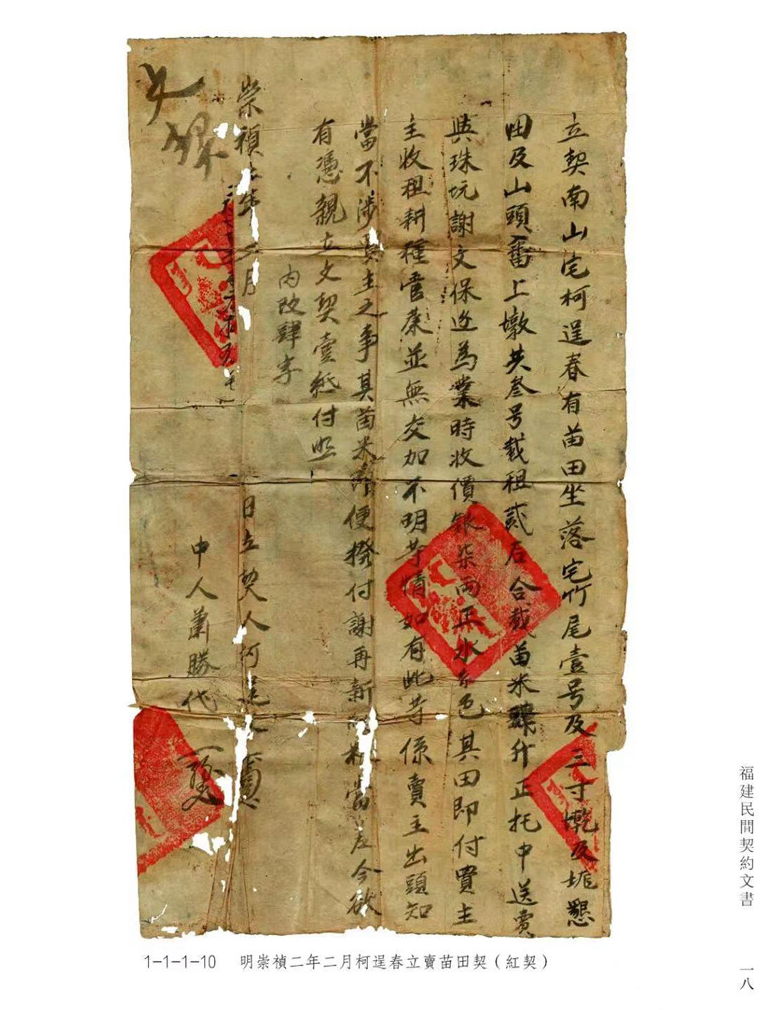 立契南山宅柯逞春有苗田坐落宅竹尾壹号及三寸墘及垊懇
田及山頭畨上墩共叁号截租貳石合載苗米肆升正托中送賣
與珠坑謝文保近為業時收價銀柒兩正水色其田即付買主
主收租耕種管業並無交加不明等情如有此等係賣主出頭知
當不涉買主之事其苗米請便撥付謝再新當差今欲
有憑親立文契壹紙付照
內改肆字
崇禎二年二月 日立契人柯逞春
中人蕭勝代
文契
1-1-1-10 明崇禎二年二月柯逞春立賣苗田契（紅契）
福建民間契約文書
一八